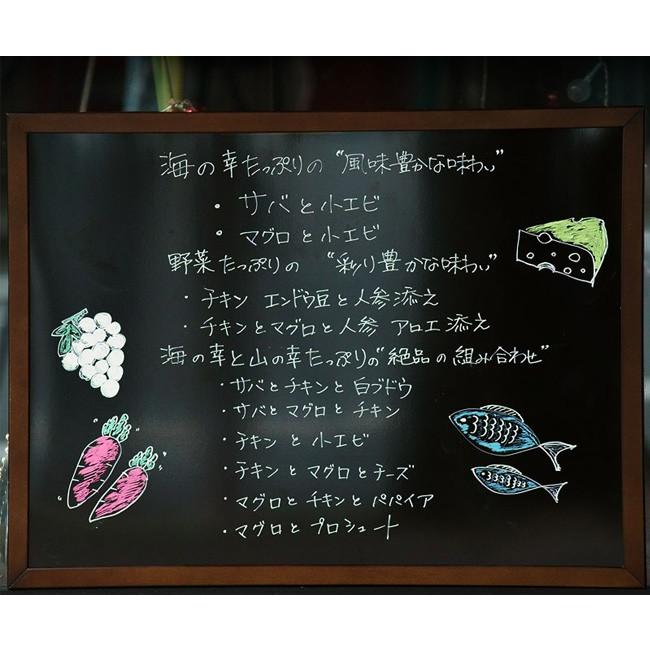 海の幸たっぷりの "風味豊かな味わい"
・サバと小エビ
・マグロと小エビ
野菜たっぷりの "彩り豊かな味わい"
・チキン エンドウ豆と人参添え
・チキンとマグロと人参 アロエ添え
海の幸と山の幸たっぷりの"絶品の組み合わせ"
・サバとチキンと白ブドウ
・サバとマグロとチキン
・チキンと小エビ
・チキンとマグロとチーズ
・マグロとチキンとパパイア
・マグロとプロシュート